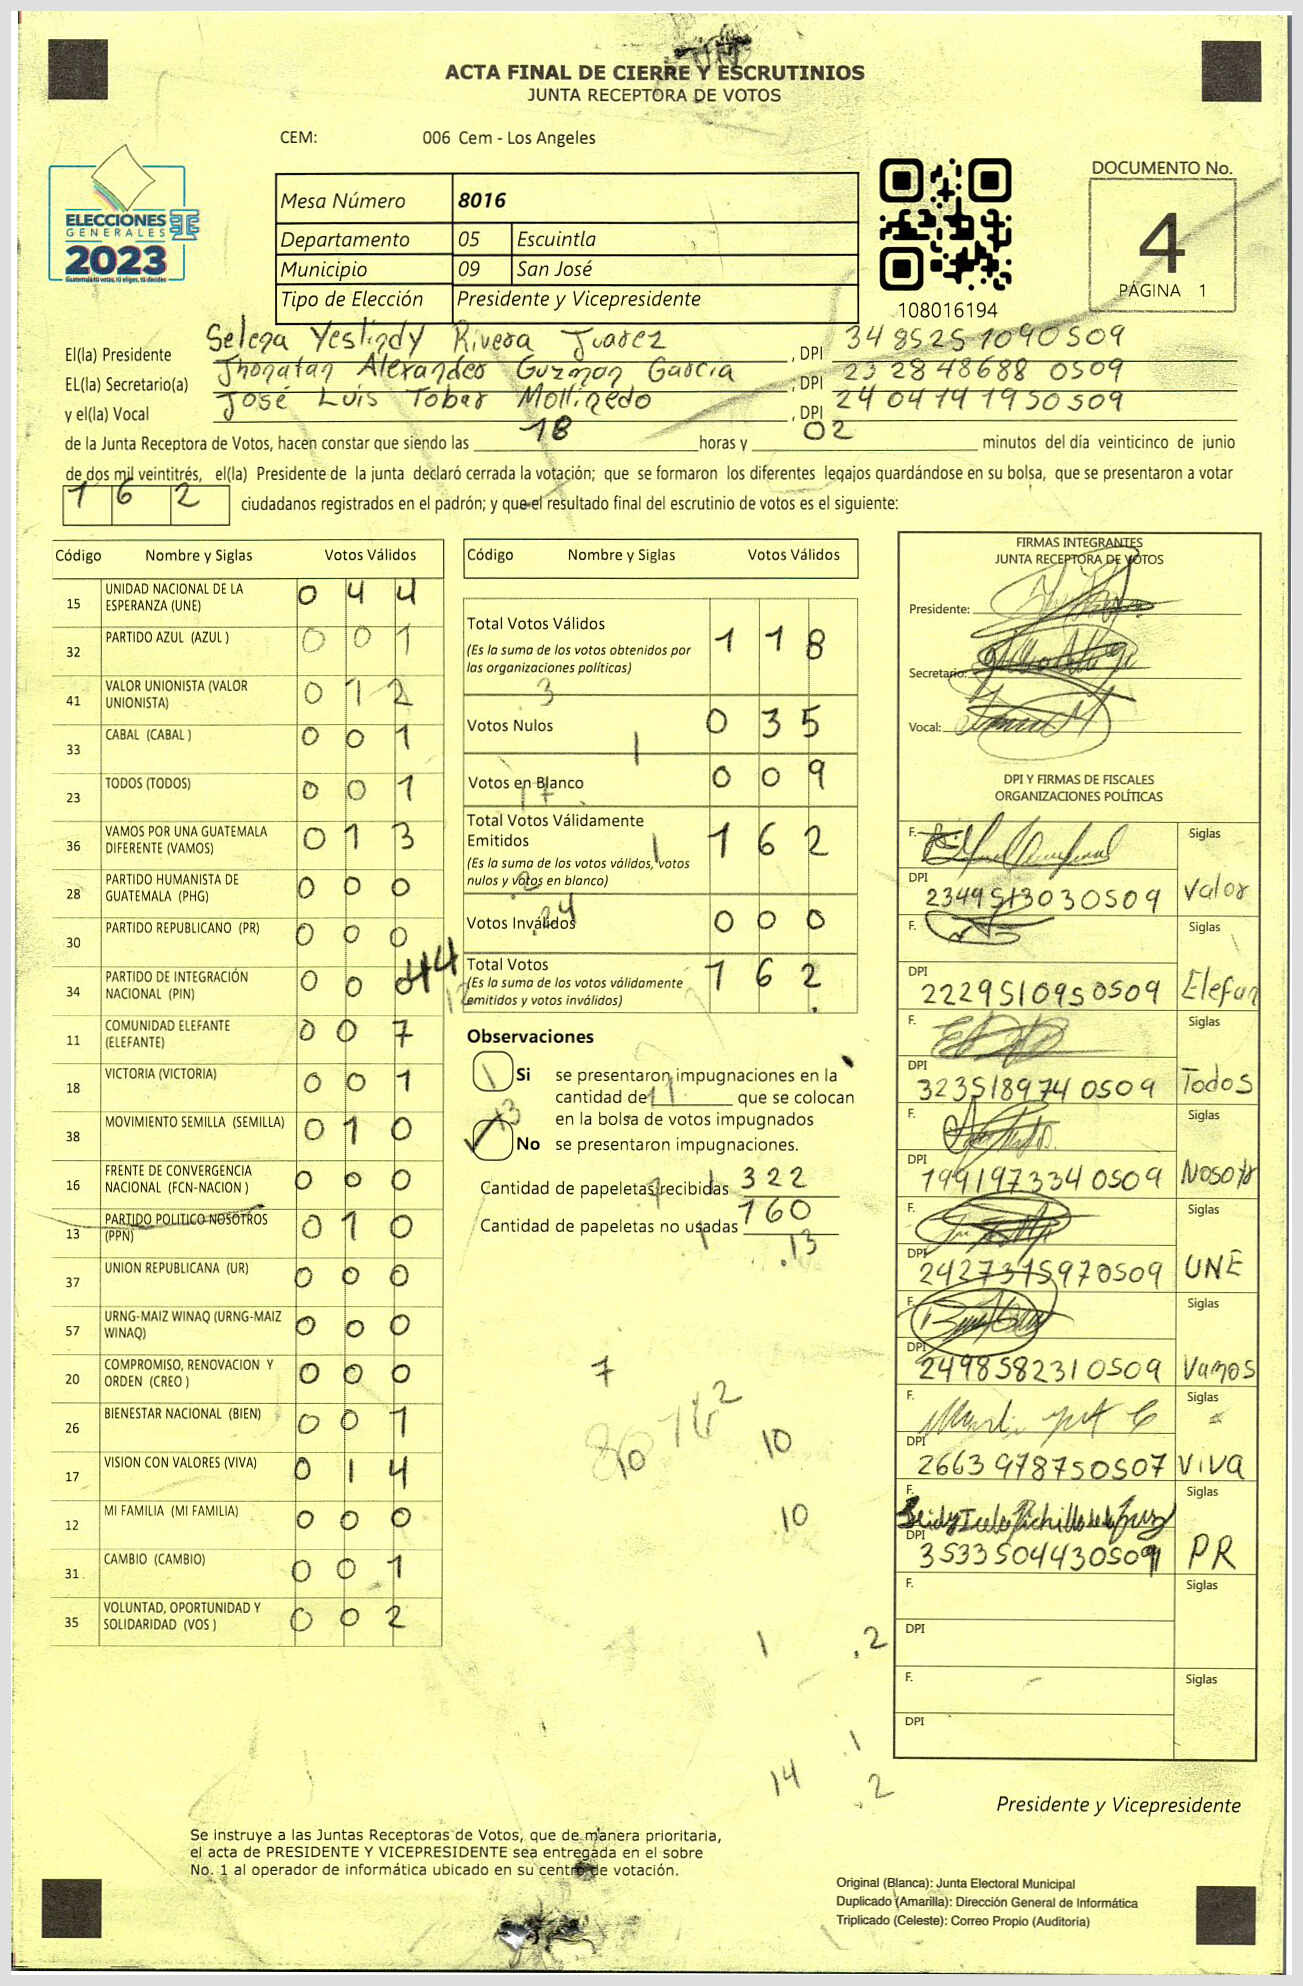 ACTA FINAL DE CIERRE Y ESCRUTINIOS
JUNTA RECEPTORA DE VOTOS
CEM: 006 Cem - Los Angeles
ELECCIONES
GENERALES
2023
Mesa Número 8016
Departamento 05 Escuintla
Municipio 09 San José
Tipo de Elección Presidente y Vicepresidente
108016194
DOCUMENTO No.
4
PÁGINA 1
El(la) Presidente Selena Yeslindy Rivera Juarez, DPI 34 8525 1090509
EL(la) Secretario(a) Jhonatan Alexander Guzman Garcia, DPI 23 2848688 0509
y el(la) Vocal José Luis Tobar Mollinedo, DPI 24 0414 1950509
de la Junta Receptora de Votos, hacen constar que siendo las 18 horas y 02 minutos del día veinticinco de junio
de dos mil veintitrés, el(la) Presidente de la junta declaró cerrada la votación; que se formaron los diferentes legajos quardándose en su bolsa, que se presentaron a votar
1 6 2 ciudadanos registrados en el padrón; y que el resultado final del escrutinio de votos es el siguiente:
Código Nombre y Siglas Votos Válidos
15 UNIDAD NACIONAL DE LA ESPERANZA (UNE) 0 4 4
32 PARTIDO AZUL (AZUL ) 0 0 1
41 VALOR UNIONISTA (VALOR UNIONISTA) 0 1 2
33 CABAL (CABAL ) 0 0 1
23 TODOS (TODOS) 0 0 1
36 VAMOS POR UNA GUATEMALA DIFERENTE (VAMOS) 0 1 3
28 PARTIDO HUMANISTA DE GUATEMALA (PHG) 0 0 0
30 PARTIDO REPUBLICANO (PR) 0 0 0
34 PARTIDO DE INTEGRACIÓN NACIONAL (PIN) 0 0 0 44
11 COMUNIDAD ELEFANTE (ELEFANTE) 0 0 7
18 VICTORIA (VICTORIA) 0 0 1
38 MOVIMIENTO SEMILLA (SEMILLA) 0 1 0
16 FRENTE DE CONVERGENCIA NACIONAL (FCN-NACION ) 0 0 0
13 PARTIDO POLITICO NOSOTROS (PPN) 0 1 0
37 UNION REPUBLICANA (UR) 0 0 0
57 URNG-MAIZ WINAQ (URNG-MAIZ WINAQ) 0 0 0
20 COMPROMISO, RENOVACION Y ORDEN (CREO ) 0 0 0
26 BIENESTAR NACIONAL (BIEN) 0 0 1
17 VISION CON VALORES (VIVA) 0 1 4
12 MI FAMILIA (MI FAMILIA) 0 0 0
31 CAMBIO (CAMBIO) 0 0 1
35 VOLUNTAD, OPORTUNIDAD Y SOLIDARIDAD (VOS ) 0 0 2
Código Nombre y Siglas Votos Válidos
Total Votos Válidos 1 1 8
(Es la suma de los votos obtenidos por
las organizaciones políticas)
3
Votos Nulos 0 3 5
1
Votos en Blanco 0 0 9
17
Total Votos Válidamente
Emitidos 1 6 2
(Es la suma de los votos válidos, votos
nulos y votos en blanco)
Votos Inválidos 0 0 0
Total Votos 1 6 2
(Es la suma de los votos válidamente
emitidos y votos inválidos)
Observaciones
Si se presentaron impugnaciones en la
cantidad de ______ que se colocan
en la bolsa de votos impugnados
13
No se presentaron impugnaciones.
Cantidad de papeletas recibidas 322
Cantidad de papeletas no usadas 160
13
7
10
10
10
1 2
1
14 2
FIRMAS INTEGRANTES
JUNTA RECEPTORA DE VOTOS
Presidente:
Secretario:
Vocal:
DPI Y FIRMAS DE FISCALES
ORGANIZACIONES POLÍTICAS
F. Siglas
DPI 2349513030509 Valor
F. Siglas
DPI 2229510950509 Elefan
F. Siglas
DPI 323518974 0509 Todos
F. Siglas
DPI 199197334 0509 Nosotr
F. Siglas
DPI 2427315970509 UNE
F. Siglas
DPI 2498582310509 Vamos
F. Siglas
DPI 2663 978750507 VIVA
F. Siglas
DPI 3533504430509 PR
F. Siglas
DPI
F. Siglas
DPI
Presidente y Vicepresidente
Se instruye a las Juntas Receptoras de Votos, que de manera prioritaria,
el acta de PRESIDENTE Y VICEPRESIDENTE sea entregada en el sobre
No. 1 al operador de informática ubicado en su centro de votación.
Original (Blanca): Junta Electoral Municipal
Duplicado (Amarilla): Dirección General de Informática
Triplicado (Celeste): Correo Propio (Auditoria)